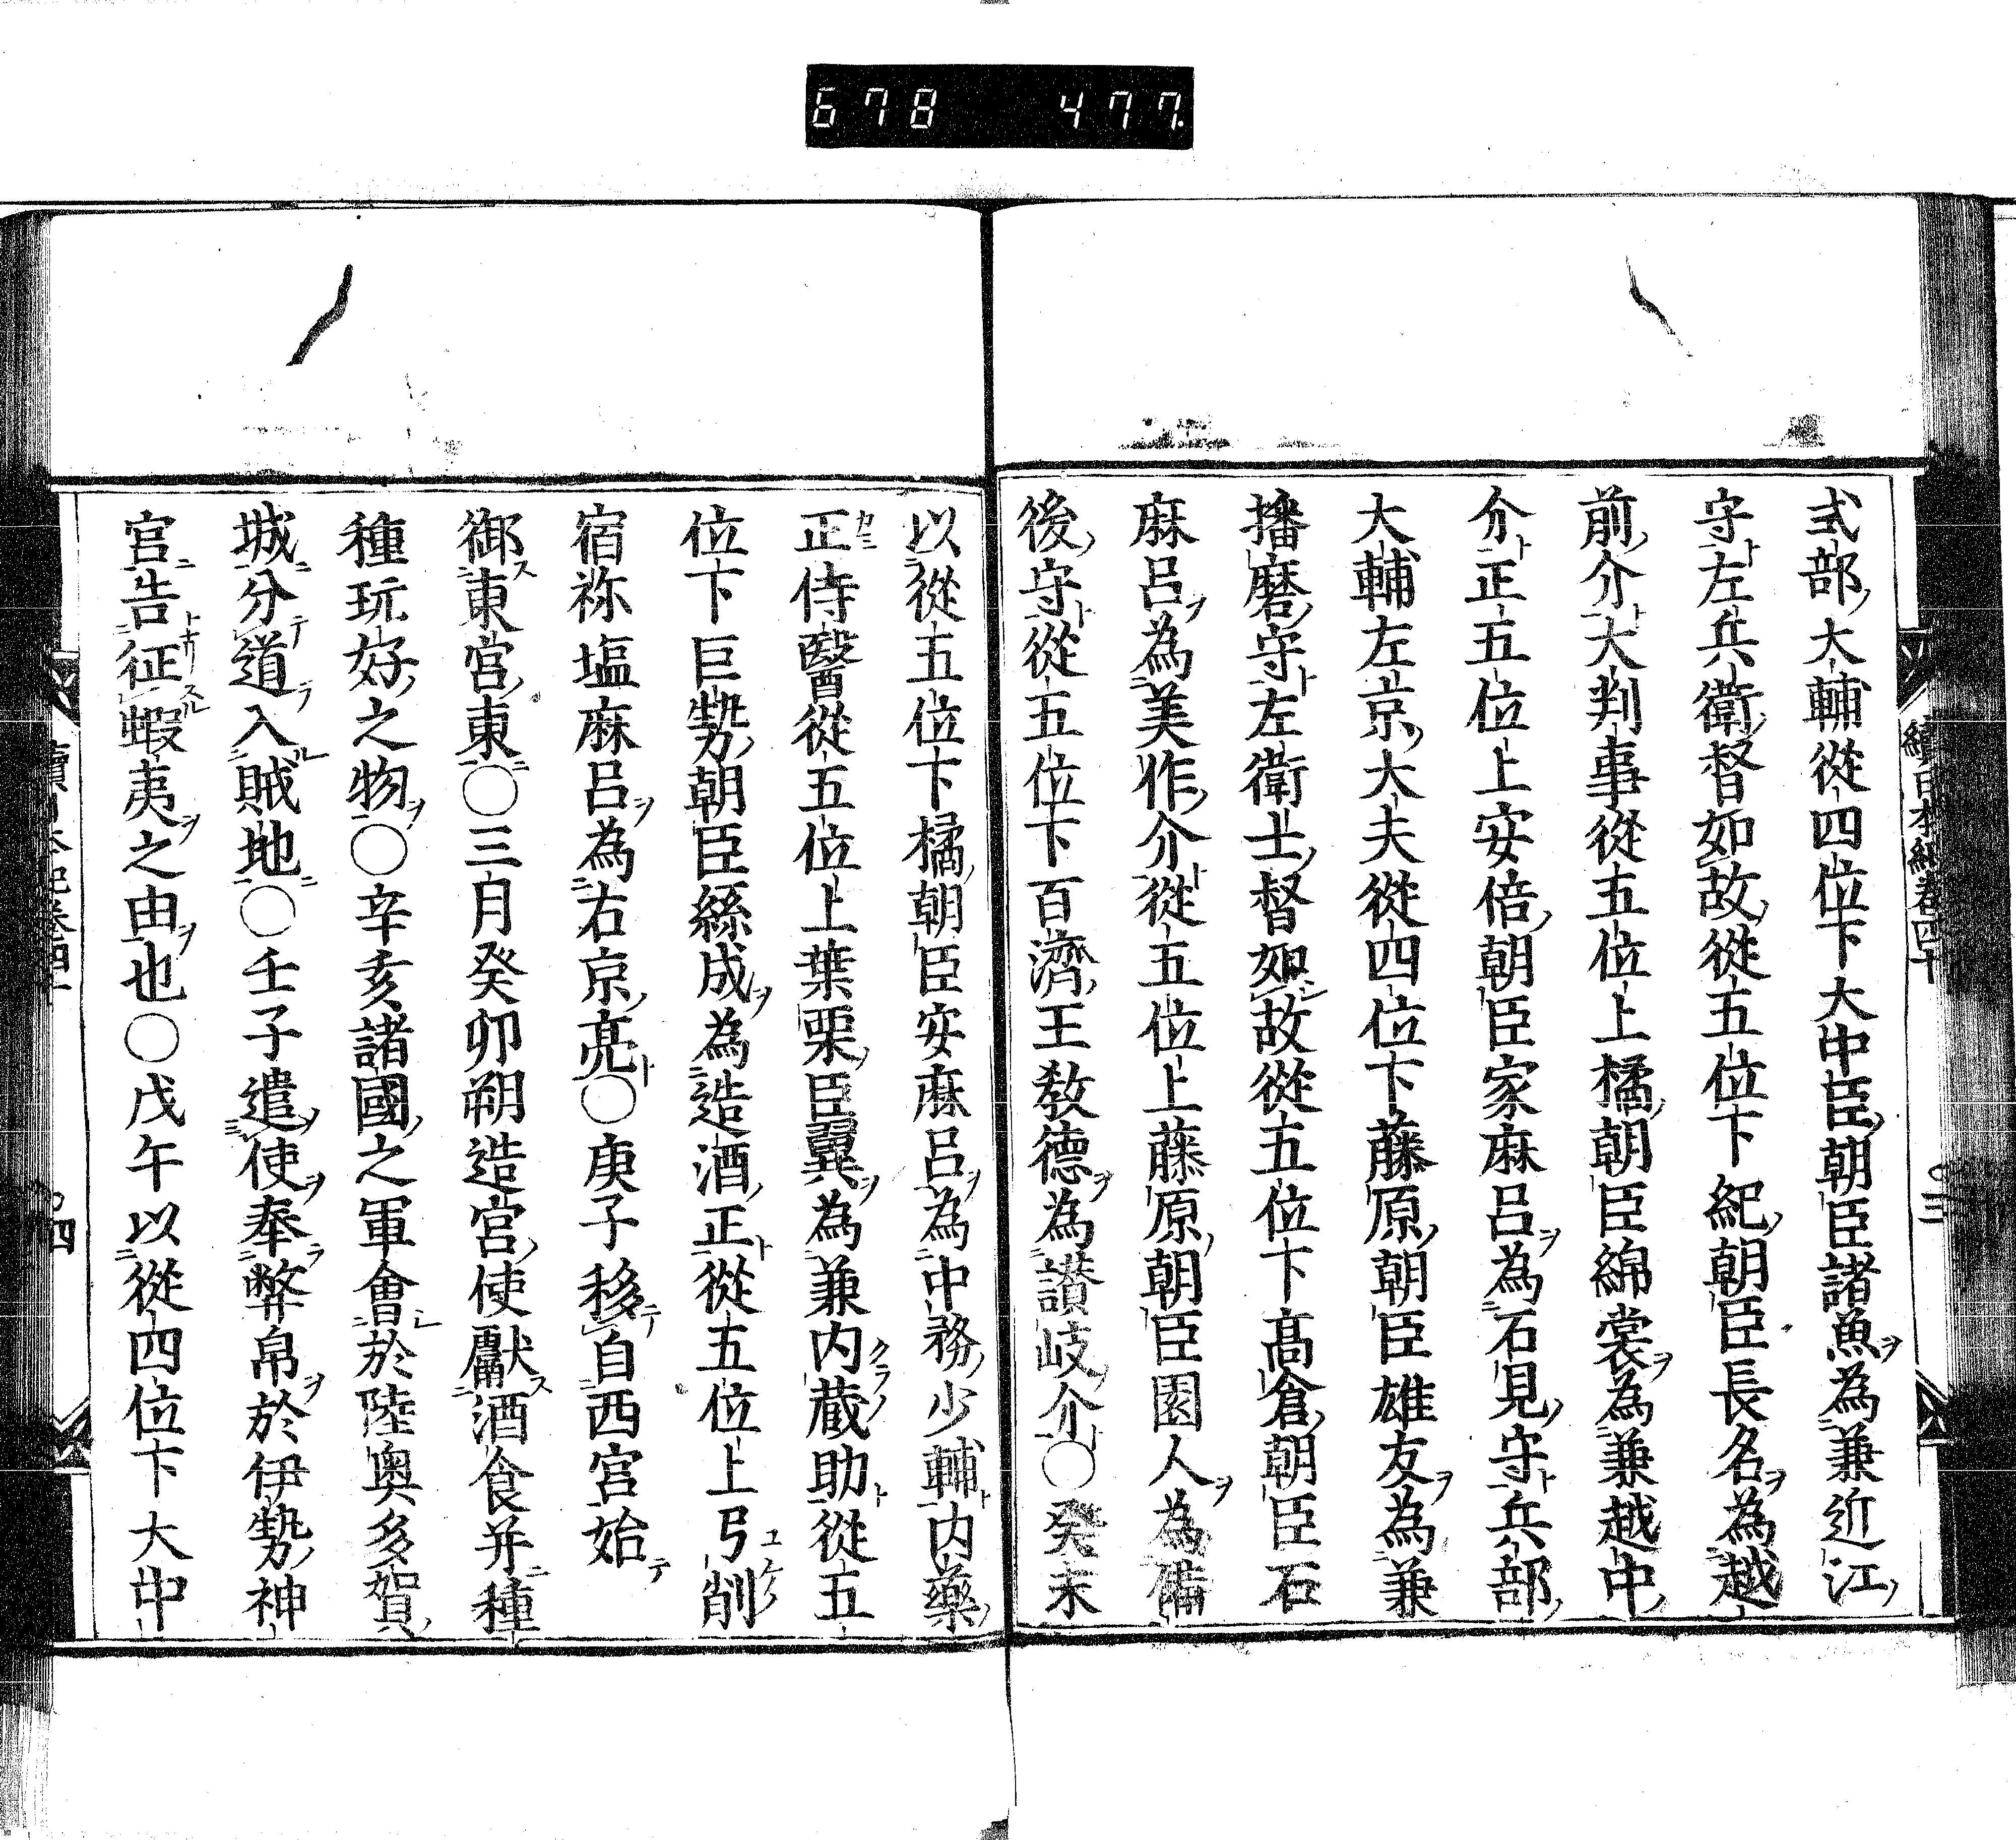 678 477.
式部大輔從四位下大中臣朝臣諸魚為兼近江
守左兵衛督如故從五位下紀朝臣長名為越
前介大判事從五位上橘朝臣綿裳為兼越中
介正五位上安倍朝臣家麻呂為石見守兵部
大輔左京大夫從四位下藤原朝臣雄友為兼
播磨守左衛士督如故從五位下高倉朝臣石
麻呂為美作介從五位上藤原朝臣園人為備
後守從五位下百濟王教德為讃岐介〇癸未
以從五位下橘朝臣安麻呂為中務少輔内藥
正侍醫從五位上葉栗臣翼為兼内蔵助從五
位下巨勢朝臣絲成為造酒正從五位上弓削
宿祢塩麻呂為右京亮〇庚子移自西宮始
御東宮東〇三月癸卯朔造宮使獻酒食并種
種玩好之物〇辛亥諸國之軍會於陸奥多賀
城分道入賊地〇壬子遣使奉弊帛於伊勢神
宮告征蝦夷之由也〇戊午以從四位下大中
續日本紀卷四十
三
續日本紀卷四十
四